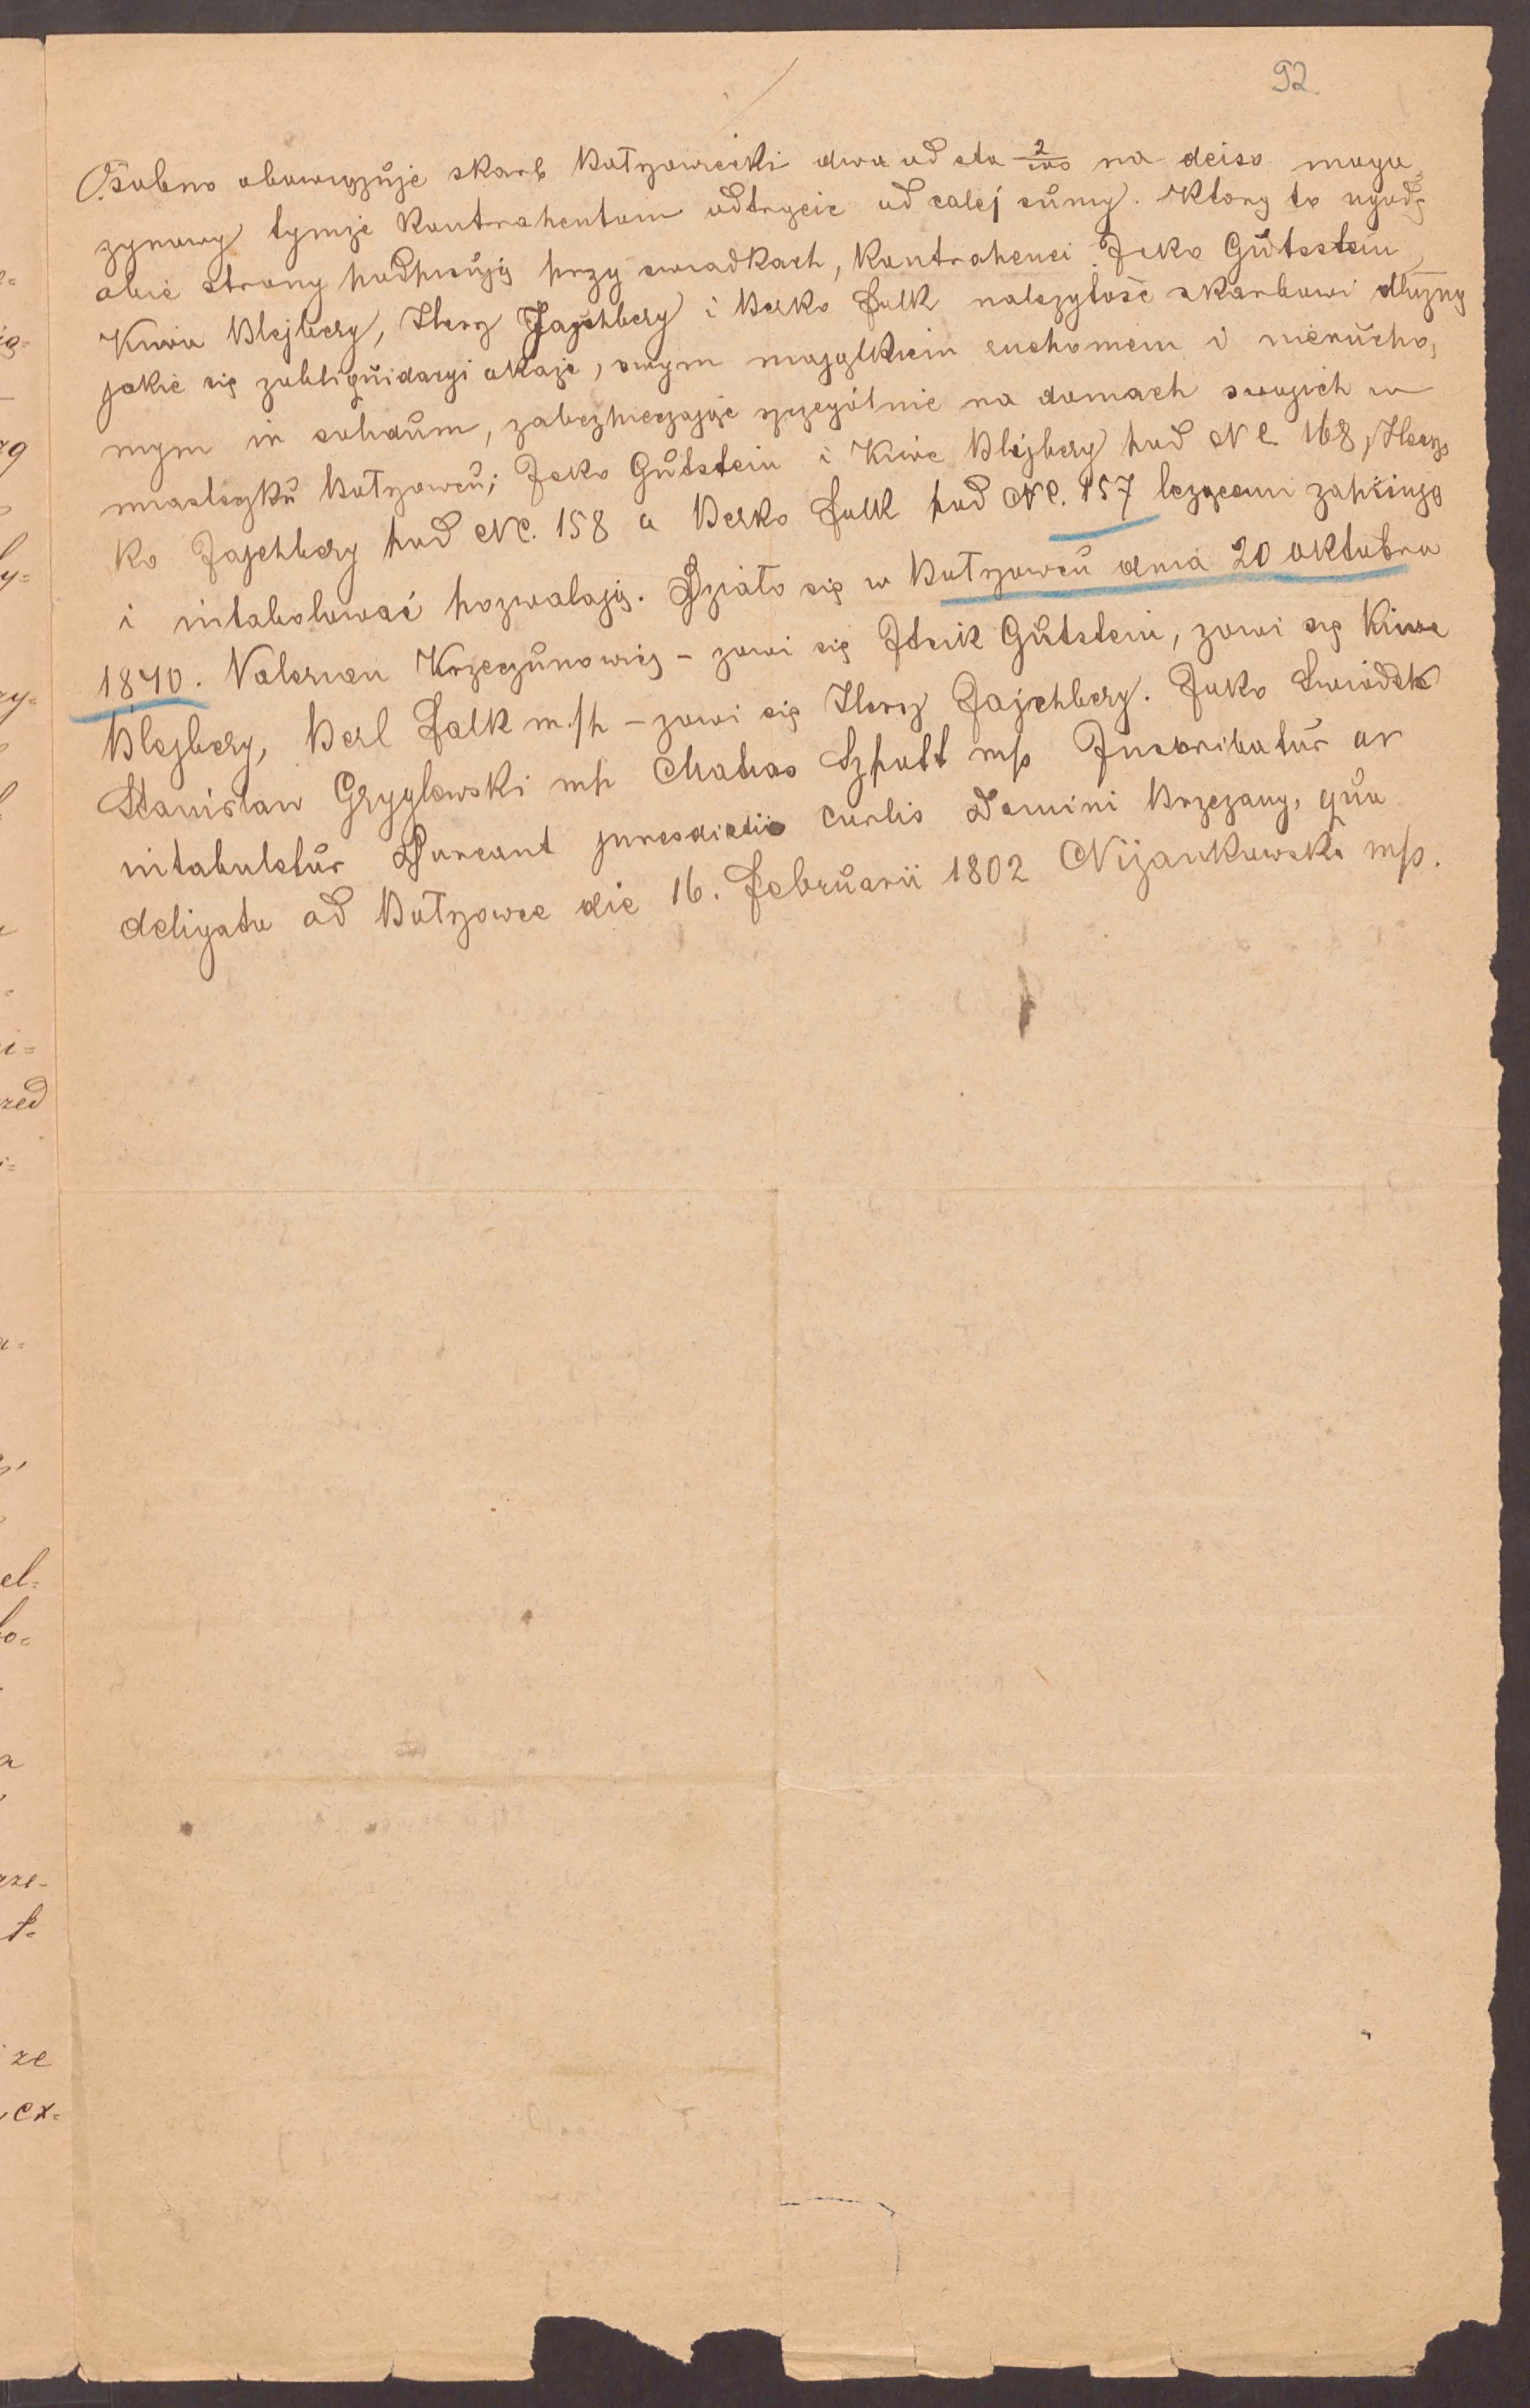 92.
Osobno obowięzuje skarb Bołszowiecki dwa od sta 2/100 na deiso maga,
zynowy tymże Kontrahentom odtrącić od całej sůmy. Ktorą to ugodę
obie strony podpisůją przy swiadkach, Kontrahenci Icko Gůtsstein,
Kiwa Blejberg, Hersz Jajchberg i Berko Falk należytość skarbowi dłużną
jakie się zobliqůidacyi okaże, swym majątkiem ruchomem i nierůcho,
mym in solidům, zabezpieczając szczególnie na domach swojich w
miasteczků Bołszowců; Icko Gůtstein i Kiwe Blejberg pod NC 168, Hersz,
ko Jajchberg pod NC. 158 a Berko Falk pod NC. 157 leżącemi zapisůją
i intabolować pozwalają. Działo się w Bołszowců dnia 20 oktobra
1840. Valerian Krzeczůnowicz - zowi się Itzik Gůtstein, zowi się Kiwe
Blejberg, Berl Falk m./p - zowi się Hersz Jajchberg. Jako Swiadek
Stanisław Gryglewski mp Matias Szpatt m/p Inscribatůr ar
intabuletůr Durant juresdictio Curtis Domini Brzezany, qůa
deligata ad Bołszowce die 16. Februarii 1802 Niżankowski m/p.
e=
ię=
rą
y=
zy=
i=
zed
i=
a=
el=
bo=
a
rze-
t-
ze
ex=